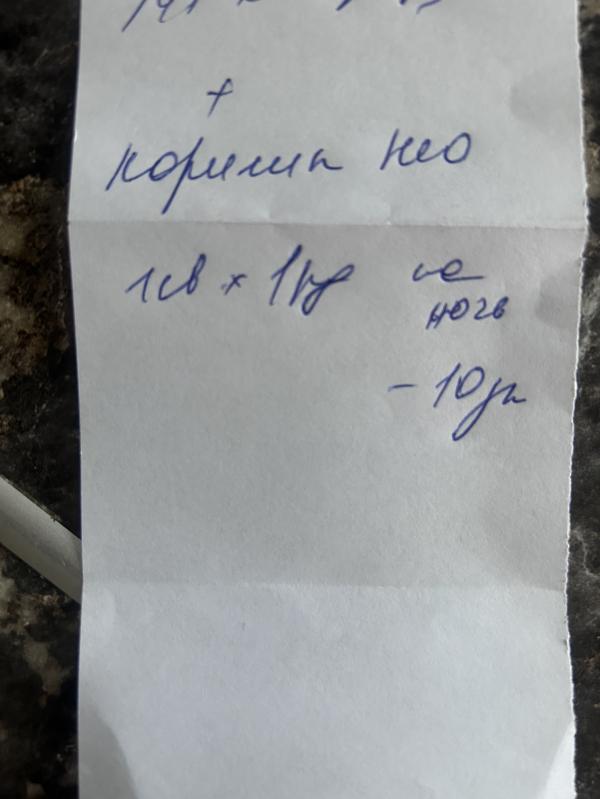 +
норина нео
1св × 1р/д на
ночь
- 10дн